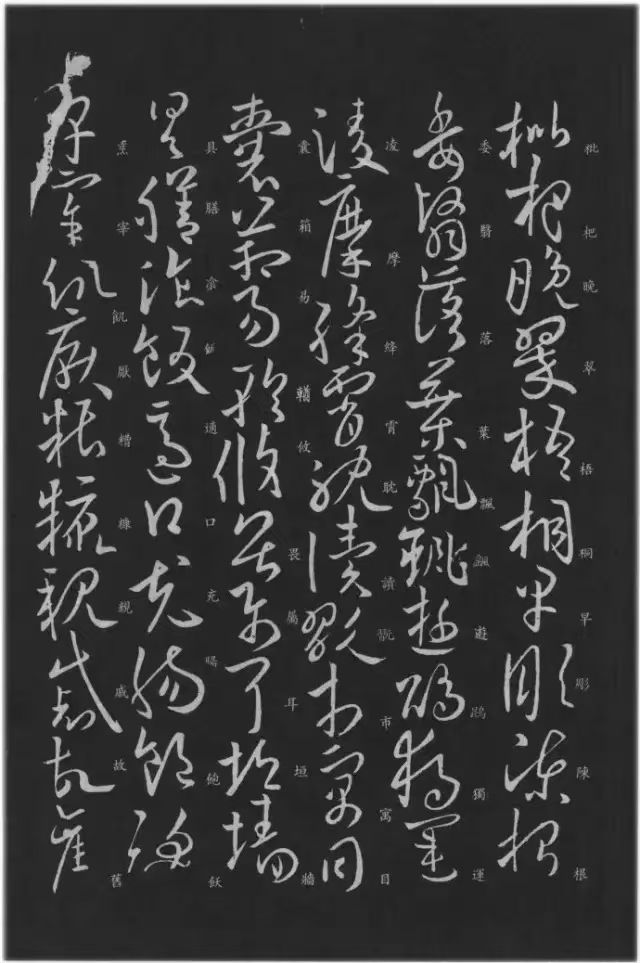 枇杷晚翠梧桐早彫陳根
枇杷晚翠梧桐早彫陳根
委翳落葉飄颻遊鵾獨運
委翳落葉飄颻遊鵾獨運
凌摩絳霄耽讀翫市寓目
凌摩絳霄耽讀翫市寓目
囊箱易輶攸畏屬耳垣牆
囊箱易輶攸畏屬耳垣牆
具膳飡飯適口充腸飽飫
具膳飡飯適口充腸飽飫
烹宰飢厭糟糠親戚故舊
烹宰飢厭糟糠親戚故舊